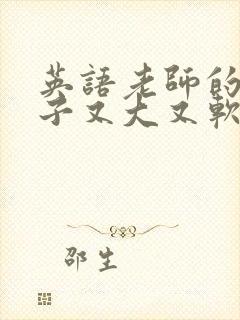 英語老師的
子又大又軟
邵生